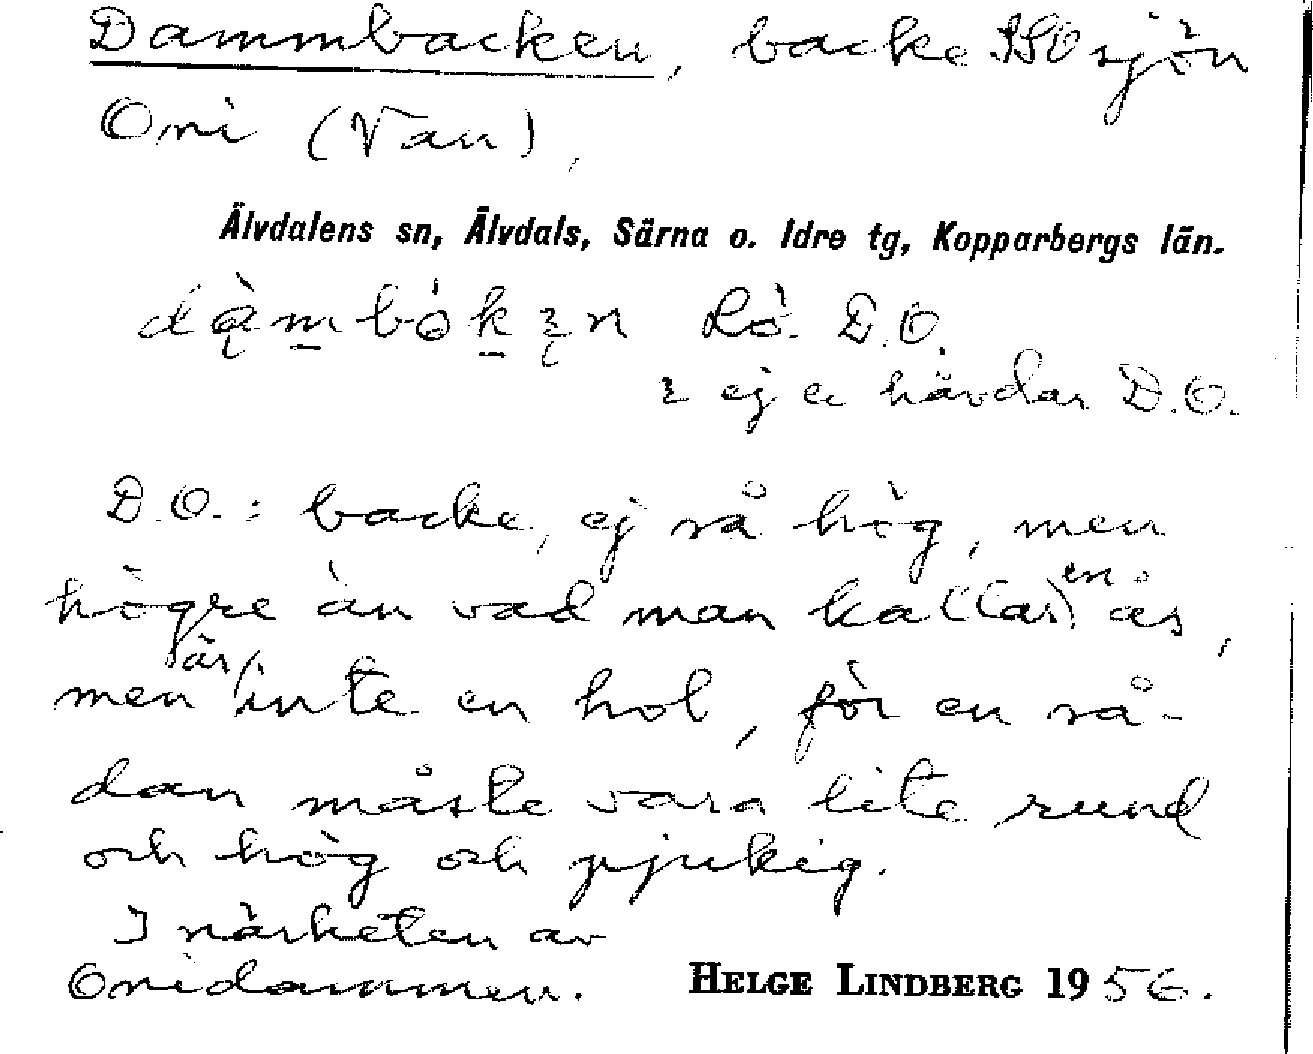 Dammbacken, backe SSO sjön
Oni (Van),
Älvdalens sn, Älvdals, Särna o. Idre tg, Kopparbergs län.
Lö. D.O.
ej e hävdar D.O.
D.O.: backe, ej så hög, men
högre än vad man kallar en ås,
men är inte en hol, för en så-
dan måste vara lite rund
och hög och pjukig.
I närheten av
Onidammen.
HELGE LINDBERG 1956.